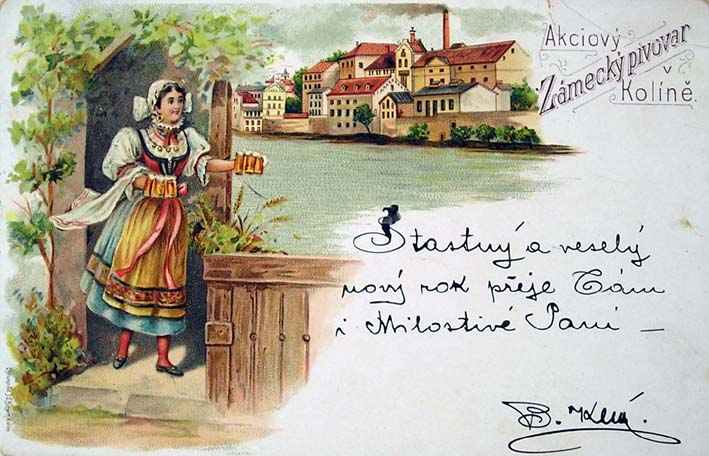 Akciový
Zámecký pivovar
v
Kolíně.
Šťastný a veselý
nový rok přeje Vám
i Milostivé Paní –
B.